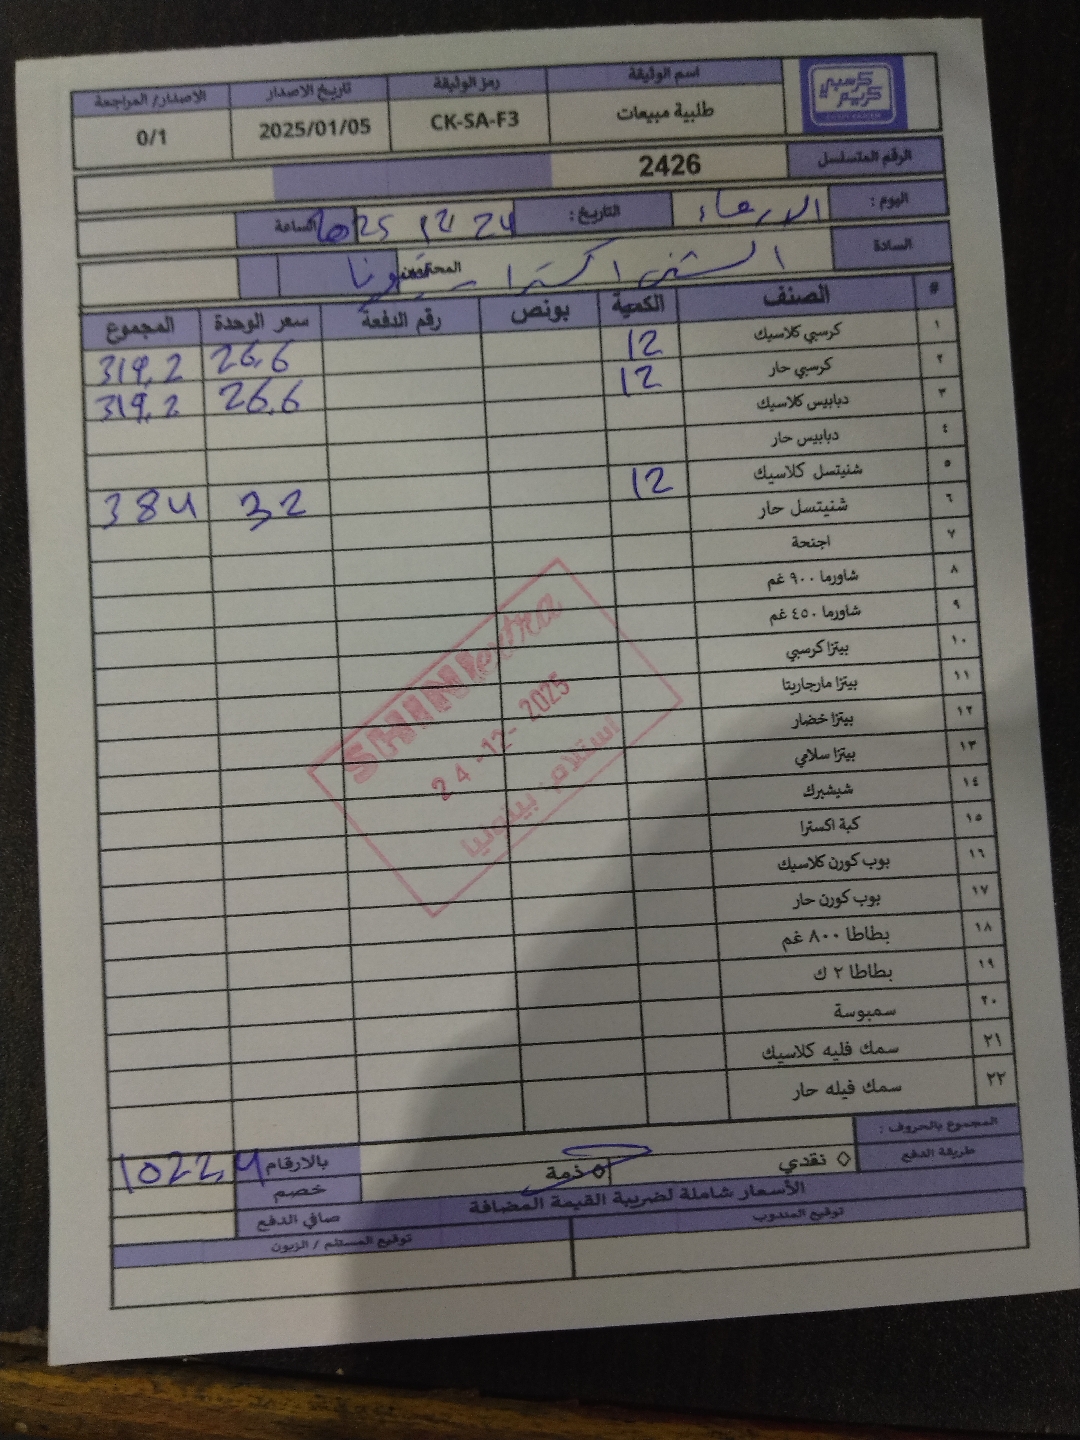 كرسبي كريم
اسم الوثيقة رمز الوثيقة تاريخ الاصدار الاصدار/ المراجعة
طلبية مبيعات CK-SA-F3 2025/01/05 0/1
الرقم المتسلسل 2426
اليوم : الاربعاء التاريخ : 24 12 2025 الساعة
السادة الشني اكسترا المحترمون
# الصنف الكمية بونص رقم الدفعة سعر الوحدة المجموع
١ كرسبي كلاسيك 12 26.6 319.2
٢ كرسبي حار 12 26.6 319.2
٣ دبابيس كلاسيك
٤ دبابيس حار
٥ شنيتسل كلاسيك 12 32 384
٦ شنيتسل حار
٧ اجنحة
٨ شاورما ٩٠٠ غم
٩ شاورما ٤٥٠ غم
١٠ بيتزا كرسبي
١١ بيتزا مارجاريتا
١٢ بيتزا خضار
١٣ بيتزا سلامي
١٤ شيشبرك
١٥ كبة اكسترا
١٦ بوب كورن كلاسيك
١٧ بوب كورن حار
١٨ بطاطا ٨٠٠ غم
١٩ بطاطا ٢ ك
٢٠ سمبوسة
٢١ سمك فليه كلاسيك
٢٢ سمك فيله حار
SHINI extra
24-12-2025
استلام بيتونيا
المجموع بالحروف :
طريقة الدفع نقدي ذمة بالارقام 1022.4
خصم
الأسعار شاملة لضريبة القيمة المضافة صافي الدفع
توقيع المندوب توقيع المستلم / الزبون